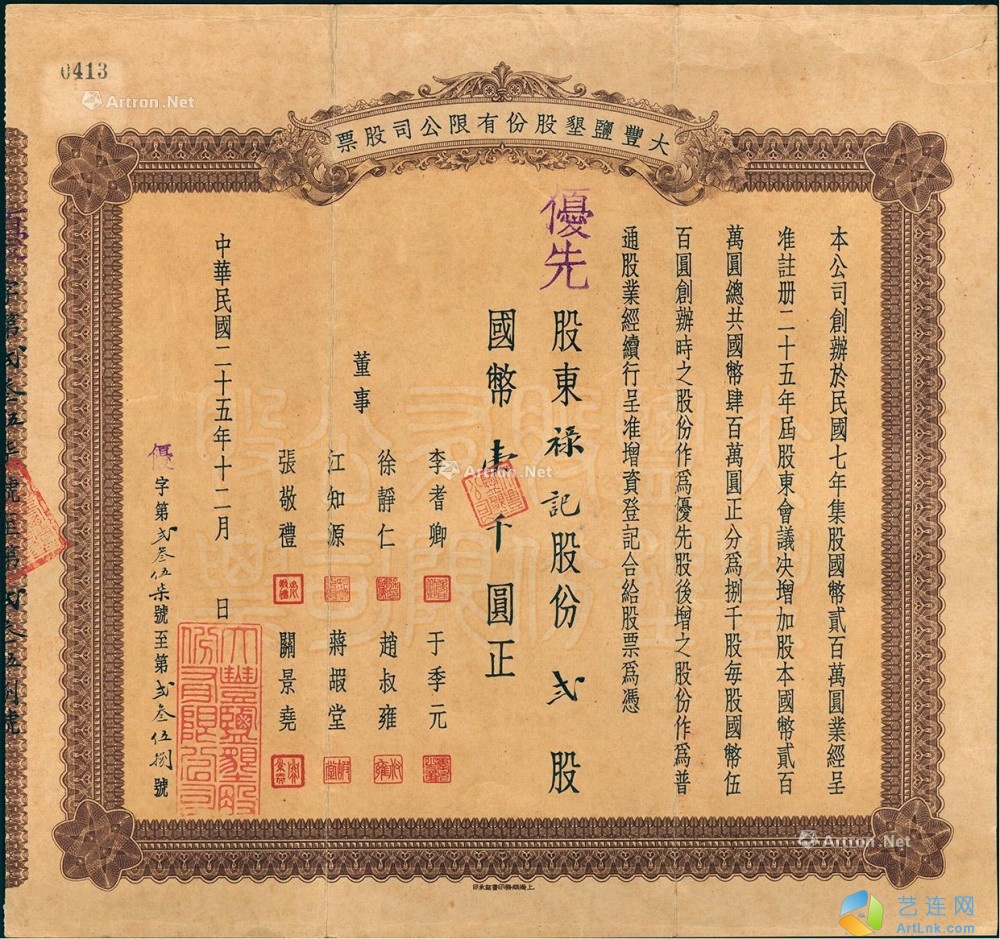 0413
Artron.Net
大豐鹽墾股份有限公司股票
本公司創辦於民國七年集股國幣貳百萬圓業經呈
准註册二十五年屆股東會議決增加股本國幣貳百
萬圓總共國幣肆百萬圓正分爲捌千股每股國幣伍
百圓創辦時之股份作爲優先股後增之股份作爲普
通股業經續行呈准增資登記合給股票爲憑
優先
股東祿記股份弍股
國幣壹千圓正
董事
李耆卿 于季元
徐靜仁 趙叔雍
江知源 蔣嘏堂
張敬禮 關景堯
中華民國二十五年十二月 日
優字第弍叁伍柒號至第弍叁伍捌號
大豐鹽墾股份有限公司
Artron.Net
Artron.Net
艺连网
ArtLnk.com